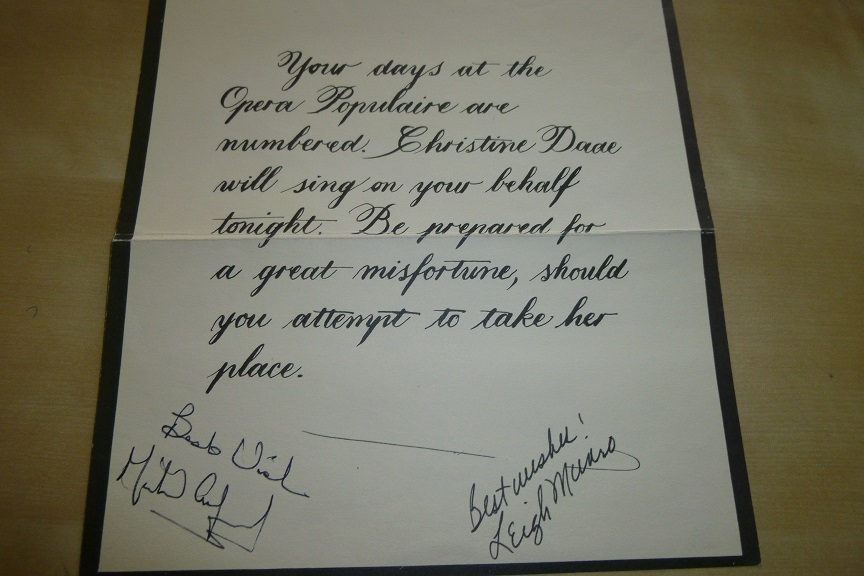 Your days at the
Opera Populaire are
numbered. Christine Daae
will sing on your behalf
tonight. Be prepared for
a great misfortune, should
you attempt to take her
place.
Best Wishes
Best wishes!
Leigh Munro